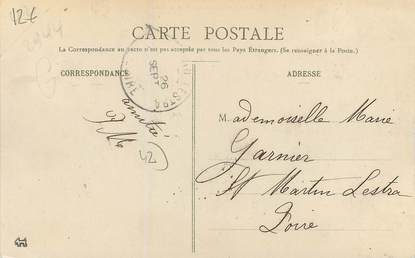 12€
CARTE POSTALE
La Correspondance au recto n'est pas acceptée par tous les Pays Étrangers. (Se renseigner à la Poste.)
CORRESPONDANCE
ADRESSE
LESTRA
26
SEPT
LOIRE
amitié
42
Mademoiselle Marie
Garnier
St Martin Lestra
Loire